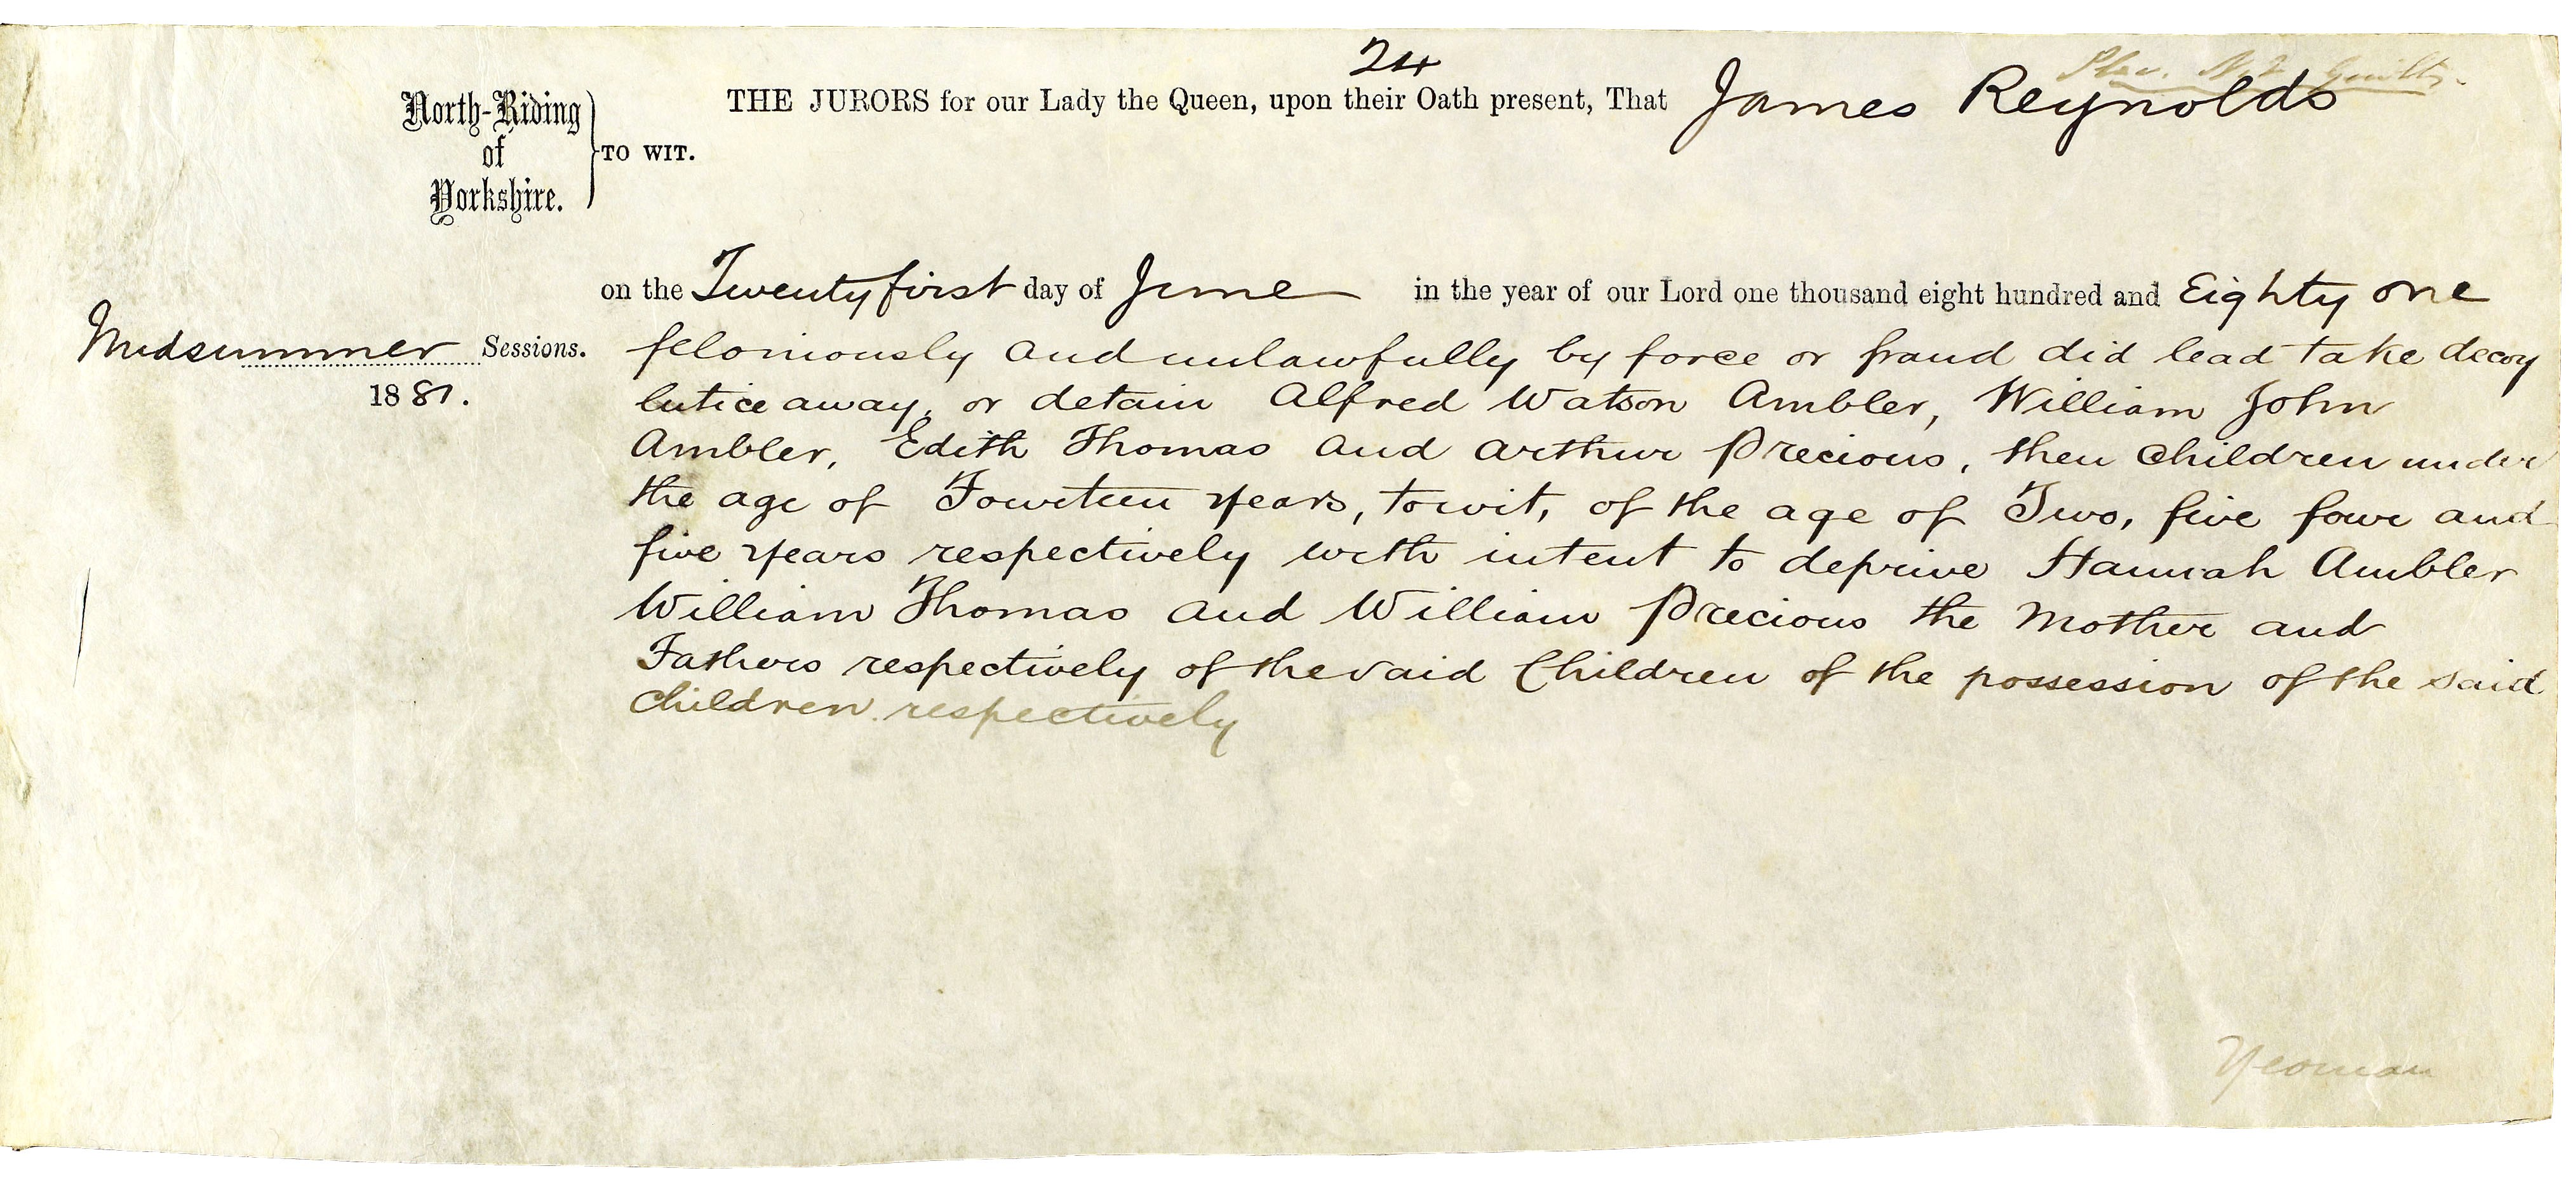 24
Plea. Not Guilty.
North-Riding
of
Yorkshire.
TO WIT.
THE JURORS for our Lady the Queen, upon their Oath present, That James Reynolds
on the Twenty first day of June in the year of our Lord one thousand eight hundred and Eighty one
Midsummer Sessions.
1881.
feloniously and unlawfully by force or fraud did lead take decoy
entice away, or detain Alfred Watson Ambler, William John
Ambler, Edith Thomas and Arthur Precious, then Children under
the age of Fourteen years, towit, of the age of Two, five four and
five years respectively with intent to deprive Hannah Ambler
William Thomas and William Precious the Mother and
Fathers respectively of the said Children of the possession of the said
Children respectively
Yeoman